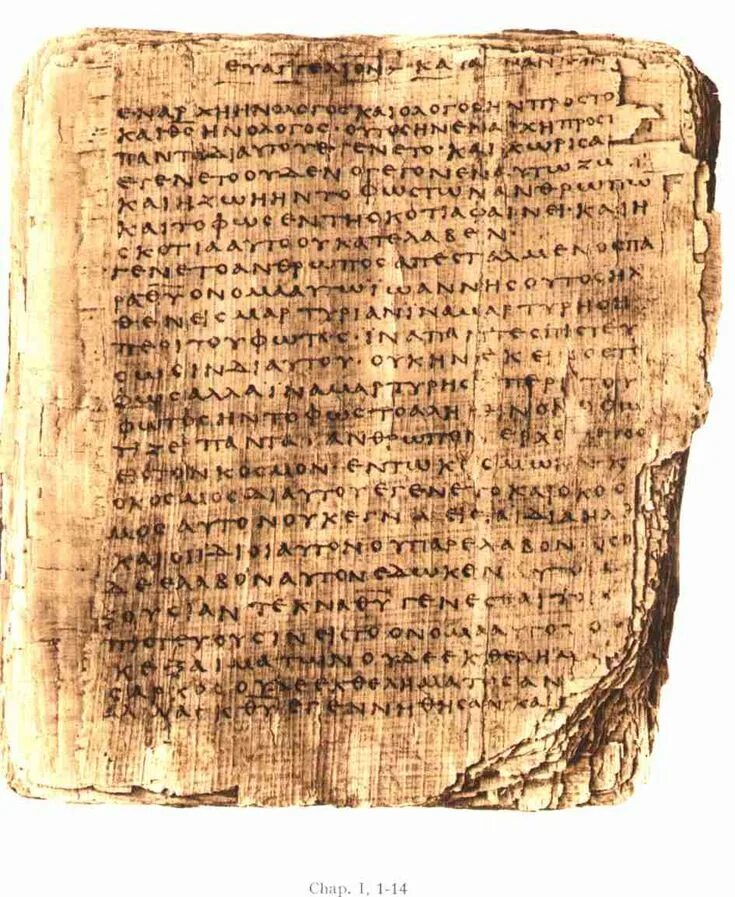 ΕΥΑΓΓΕΛΙΟΝ ΚΑΤΑ
ΕΝΑΡΧΗΗΝΟΛΟΓΟϹΚΑΙΟΛΟΓΟϹΗΝΠΡΟϹΤΟ
ΚΑΙΘϹΗΝΟΛΟΓΟϹ·ΟΥΤΟϹΗΝΕΝΑΡΧΗΠΡΟϹΤ
ΠΑΝΤΑΔΙΑΥΤΟΥΕΓΕΝΕΤΟ·ΚΑΙΧΩΡΙϹΑ
ΕΓΕΝΕΤΟΟΥΔΕΝΟΓΕΓΟΝΕΝΑΥΤΩΖΩ
ΚΑΙΗΖΩΗΗΝΤΟΦΩϹΤΩΝΑΝΘΡΩΠΩ
ΚΑΙΤΟΦΩϹΕΝΤΗϹΚΟΤΙΑΦΑΙΝΕΙ·ΚΑΙΗ
ϹΚΟΤΙΑΑΥΤΟΟΥΚΑΤΕΛΑΒΕΝ·
ΓΕΝΕΤΟΑΝΘΡΩΠΟϹΑΠΕϹΤΑΛΜΕΝΟϹΠΑ
ΡΑΘΥΟΝΟΜΑΑΥΤΩΙΩΑΝΝΗϹΟΥΤΟϹΗΛ
ΘΕΝΕΙϹΜΑΡΤΥΡΙΑΝΙΝΑΜΑΡΤΥΡΗϹΗ
ΠΕΡΙΤΟΥΦΩΤΟϹ·ΙΝΑΠΑΝΤΕϹΠΙϹΤΕΥ
ϹΩϹΙΝΔΙΑΥΤΟΥ·ΟΥΚΗΝΕΚΕΙΝΟϹΤΟ
ΦΩϹΑΛΛΑΙΝΑΜΑΡΤΥΡΗϹΗΠΕΡΙΤΟΥ
ΦΩΤΟϹΗΝΤΟΦΩϹΤΟΑΛΗΘΙΝΟΝΟΦΩ
ΤΙΖΕΙΠΑΝΤΑΑΝΘΡΩΠΟΝΕΡΧΟΜΕΝΟ
ΕΙϹΤΟΝΚΟϹΜΟΝ·ΕΝΤΩΚΟϹΜΩΗΝΚ
ΟΚΟϹΜΟϹΔΙΑΥΤΟΥΕΓΕΝΕΤΟΚΑΙΟΚΟϹ
ΜΟϹΑΥΤΟΝΟΥΚΕΓΝΩΕΙϹΤΑΙΔΙΑΗΛΘ
ΚΑΙΟΙΙΔΙΟΙΑΥΤΟΝΟΥΠΑΡΕΛΑΒΟΝ·ΟϹΟΙ
ΔΕΕΛΑΒΟΝΑΥΤΟΝΕΔΩΚΕΝΑΥΤΟΙ
ΞΟΥϹΙΑΝΤΕΚΝΑΘΥΓΕΝΕϹΘΑΙΤΟΙϹ
ΠΙϹΤΕΥΟΥϹΙΝΕΙϹΤΟΟΝΟΜΑΑΥΤΟΥΟΙ
ΚΕΞΑΙΜΑΤΩΝΟΥΔΕΕΚΘΕΛΗΜ
ϹΑΡΚΟϹΟΥΔΕΕΚΘΕΛΗΜΑΤΟϹΑΝ
ΑΛΛΑΕΚΘΥΕΓΕΝΝΗΘΗϹΑΝ·ΚΑΙ
Chap. I, 1-14